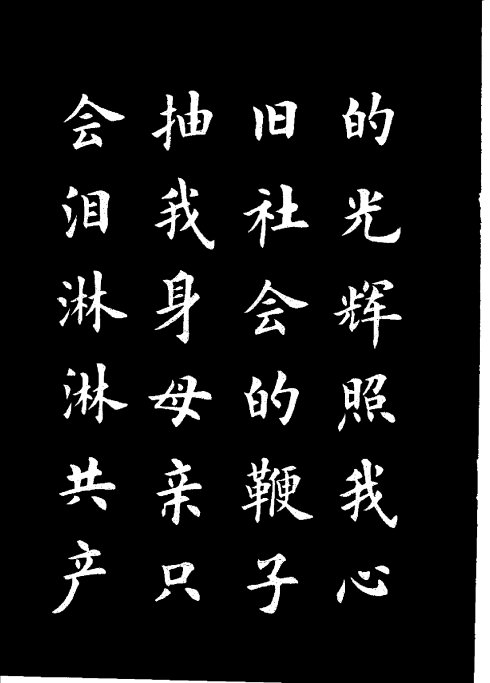 的光辉照我心
旧社会的鞭子
抽我身母亲只
会泪淋淋共产